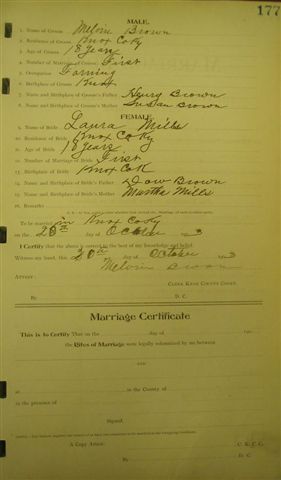 177
MALE.
1. Name of Groom Melvin Brown
2. Residence of Groom Knox Co Ky
3. Age of Groom 18 years
4. Number of Marriage of Groom First
5. Occupation Farming
6. Birthplace of Groom Knox
7. Name and Birthplace of Groom's Father Henry Brown
8. Name and Birthplace of Groom's Mother Susan Brown
FEMALE.
9. Name of Bride Laura Mills
10. Residence of Bride Knox Co Ky
11. Age of Bride 18 years
12. Number of Marriage of Bride First
13. Birthplace of Bride Knox Co K
14. Name and Birthplace of Bride's Father Brown
15. Name and Birthplace of Bride's Mother Martha Mills
16. Remarks
To be married in Knox Co Ky
on the 28th day of October 3
I Certify that the above is correct to the best of my knowledge and belief.
Witness my hand, this 20th day of October 3
Melvin Brown
Attest:
Clerk Knox County Court.
By D. C.
Marriage Certificate
This is to Certify That on the day of
the Rites of Marriage were legally solemnized by me between
and
at in the County of
in the presence of
Signed
A Copy Attest: C. K. C. C.
By D. C.